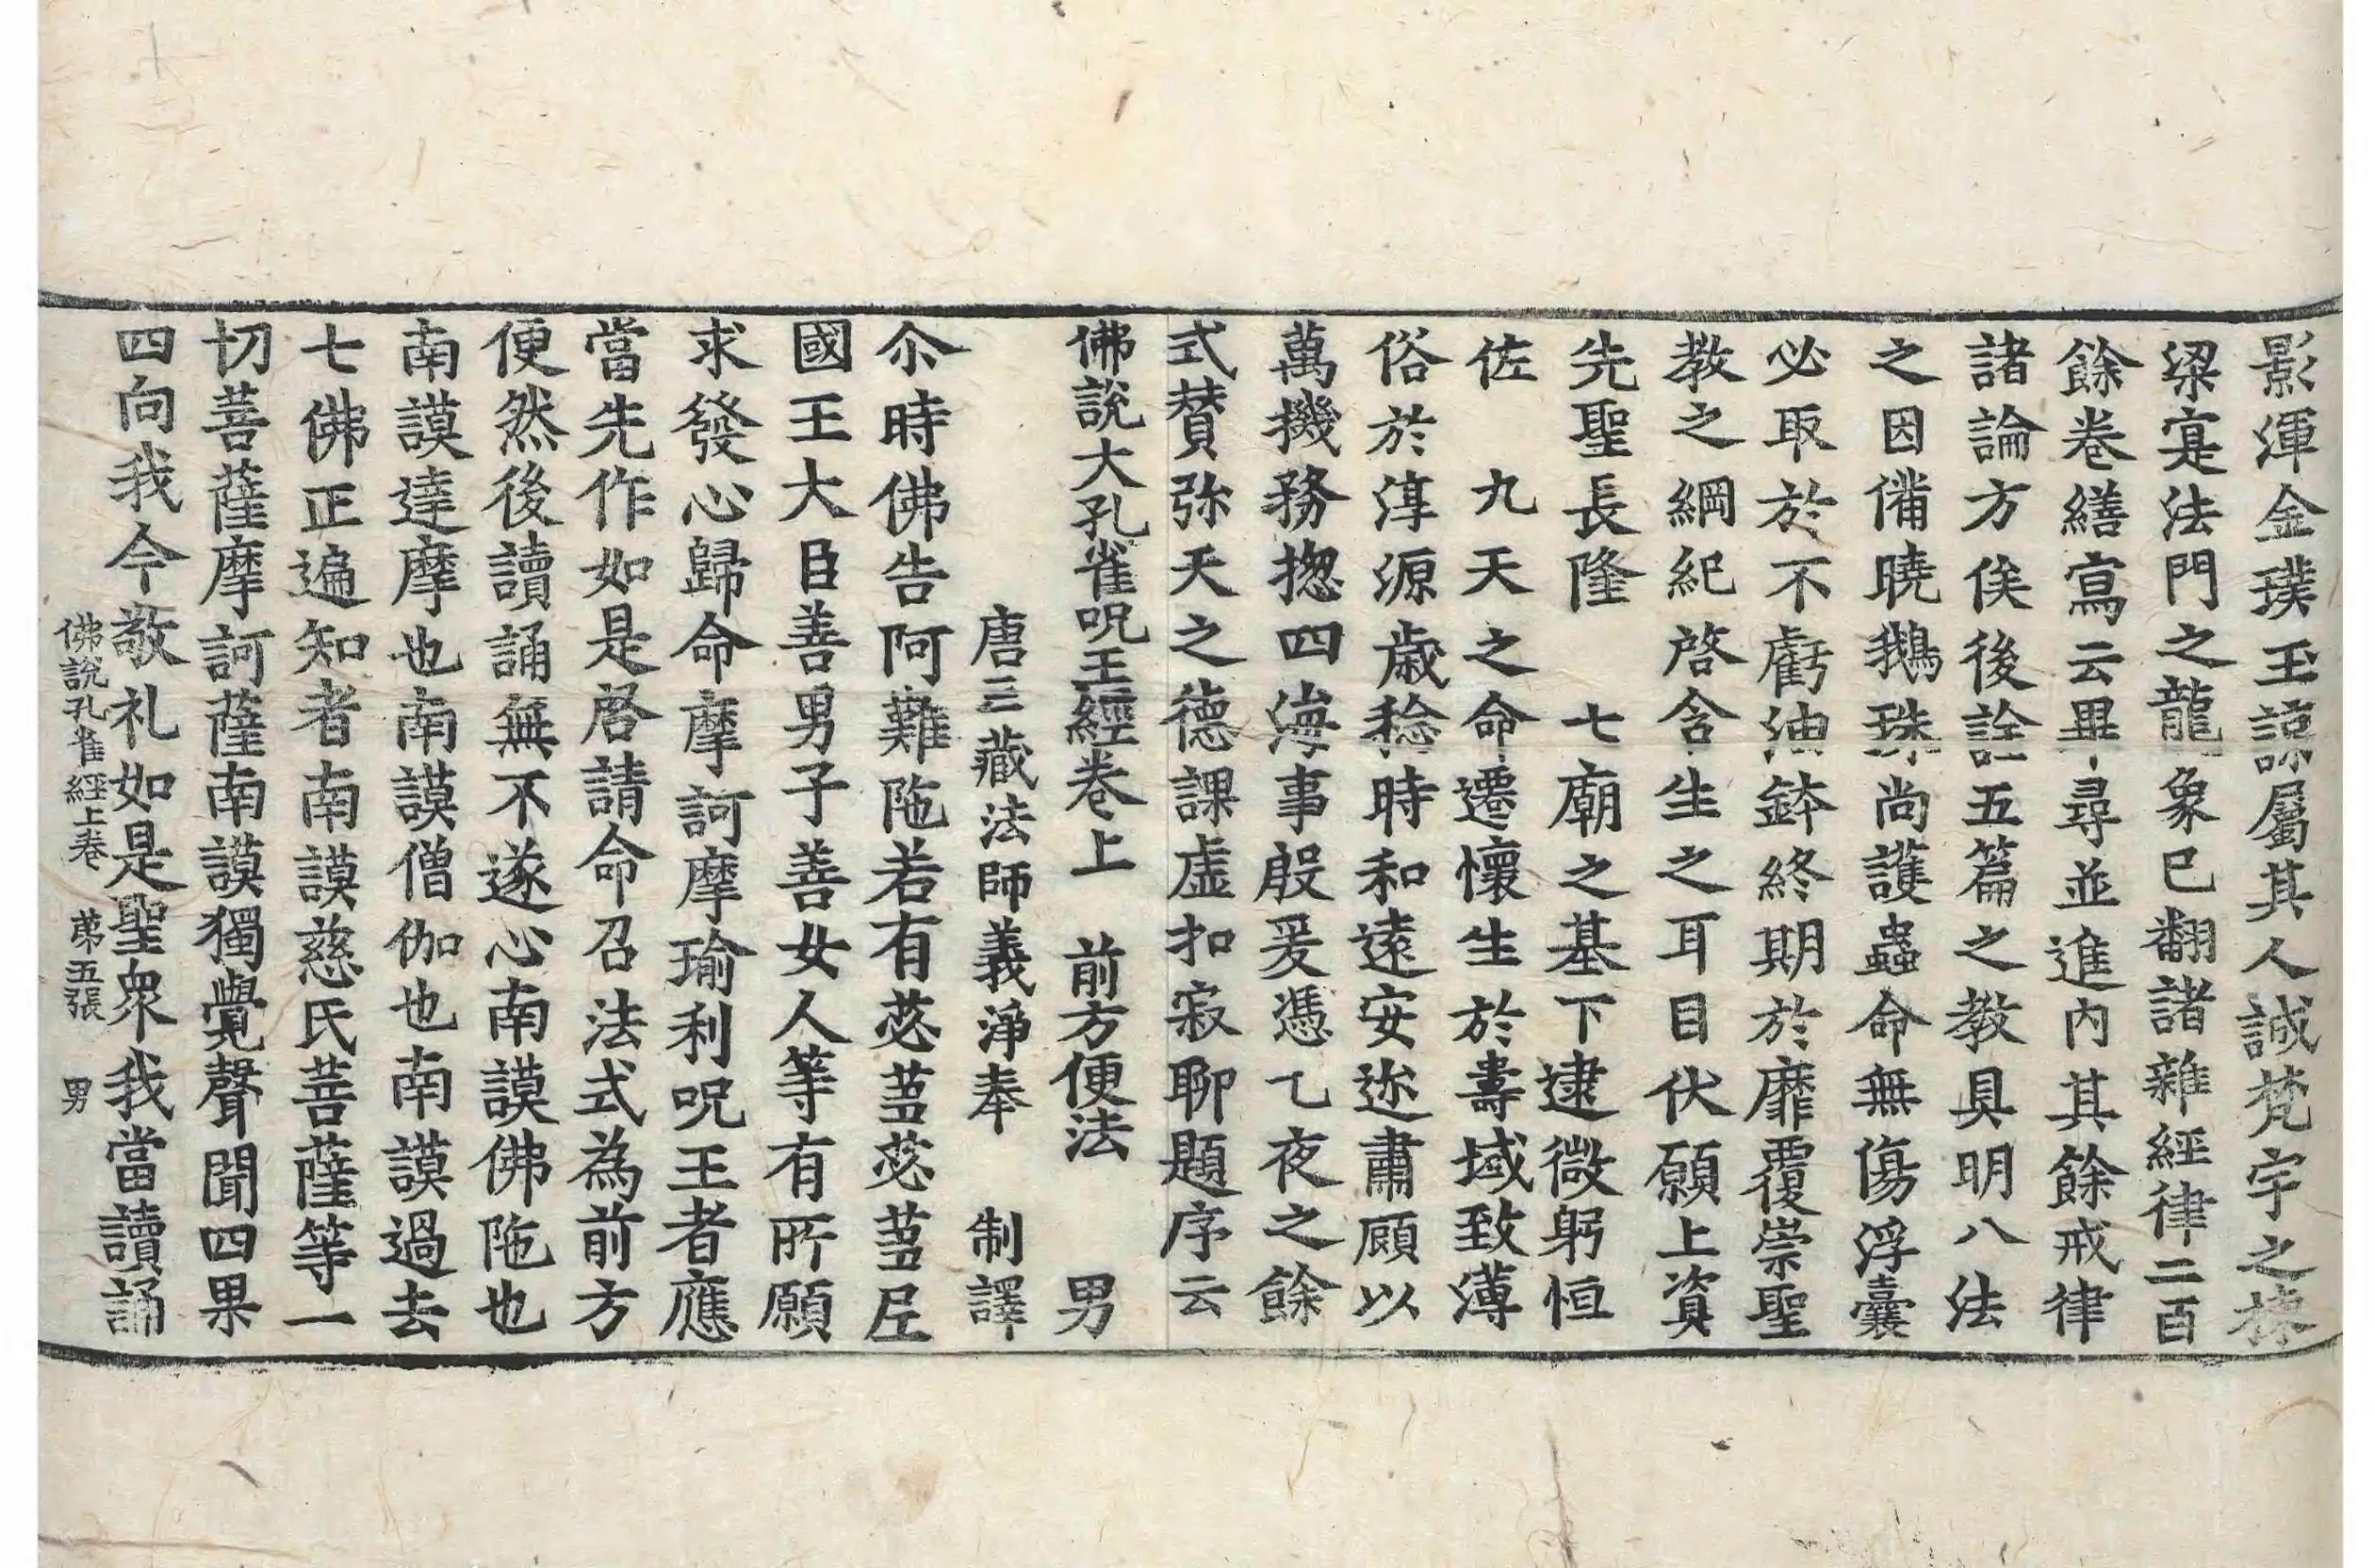 影渾金璞玉諒屬其人誠梵宇之棟
梁寔法門之龍象已翻諸雜經律二百
餘卷繕寫云畢尋並進內其餘戒律
諸論方俟後詮五篇之教具明八法
之因備曉鵝珠尚護蟲命無傷浮囊
必取於不虧油鉢終期於靡覆崇聖
教之綱紀啓含生之耳目伏願上資
先聖長隆　七廟之基下逮微躬恒
佐　九天之命遷懷生於壽域致薄
俗於淳源歲稔時和遠安迩肅顧以
萬機務揔四海事殷爰憑乙夜之餘
式賛弥天之德課虛扣寂聊題序云
佛說大孔雀呪王經卷上　前方便法　男
唐三藏法師義淨奉　制譯
尒時佛告阿難陁若有苾蒭苾蒭尼
國王大臣善男子善女人等有所願
求發心歸命摩訶摩瑜利呪王者應
當先作如是啓請命召法式為前方
便然後讀誦無不遂心南謨佛陁也
南謨達摩也南謨僧伽也南謨過去
七佛正遍知者南謨慈氏菩薩等一
切菩薩摩訶薩南謨獨覺聲聞四果
四向我今敬礼如是聖衆我當讀誦
佛說孔雀經上卷　苐五張　男